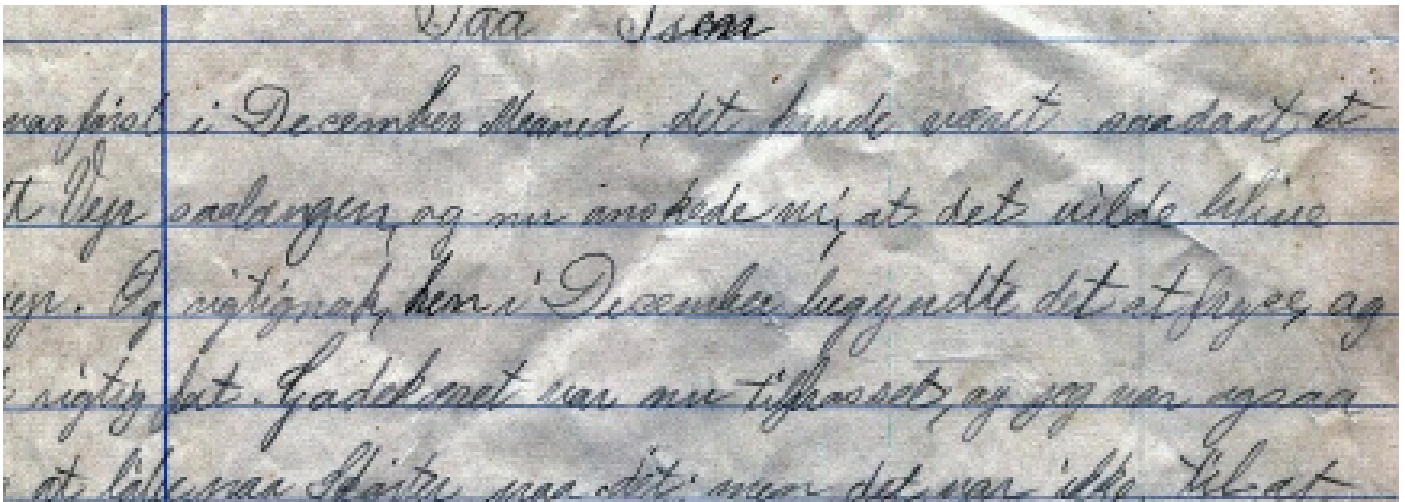 Paa Isen
var först i December Maaned, det havde været saadant et
t Vejr saalængen, og nu önskede vi, at det vilde blive
ejr. Og rigtignok, hen i December begyndte det at fryse, og
rigtig hat. Gadekæret var nu tilfrosset, og jeg var ogsaa
at löbe paa Skøjter paa det; men det var ikke til at